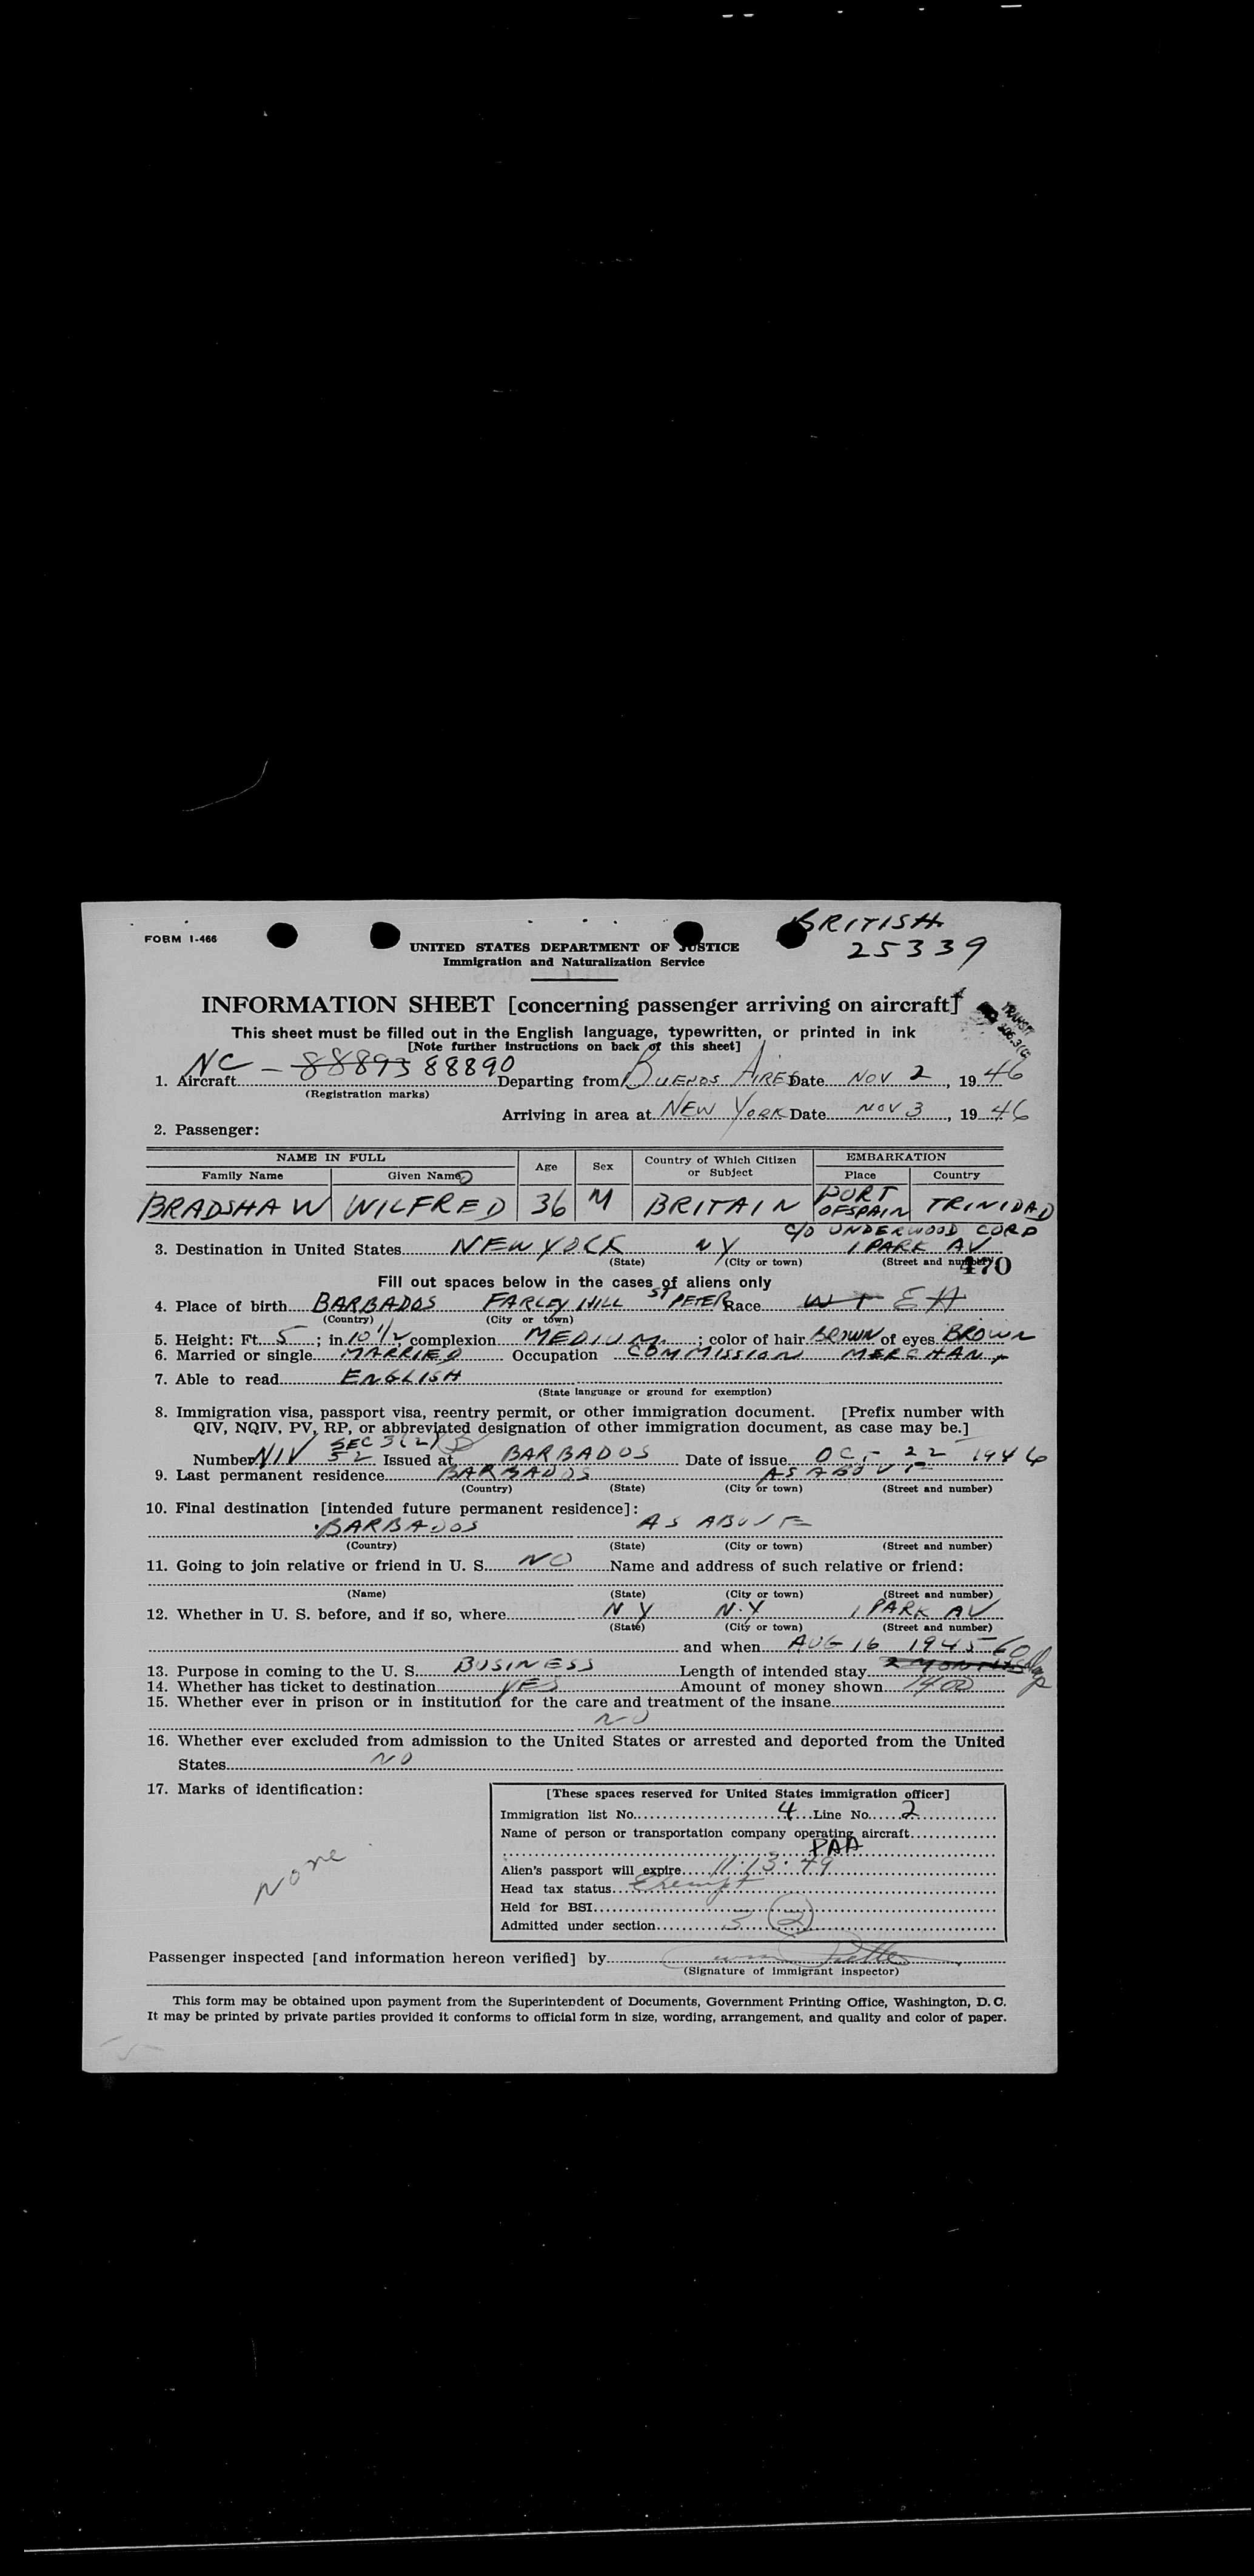 BRITISH
FORM I-466
25339
UNITED STATES DEPARTMENT OF JUSTICE
Immigration and Naturalization Service
INFORMATION SHEET [concerning passenger arriving on aircraft]
TRANSIT
This sheet must be filled out in the English language, typewritten, or printed in ink
[Note further instructions on back of this sheet]
1. Aircraft NC - 88893 88890 Departing from BUENOS AIRES Date NOV 2, 1946
(Registration marks)
Arriving in area at NEW YORK Date NOV 3, 1946
2. Passenger:
NAME IN FULL Age Sex Country of Which Citizen or Subject EMBARKATION
Family Name Given Name Place Country
BRADSHAW WILFRED 36 M BRITAIN PORT OF SPAIN TRINIDAD
C/O UNDERWOOD CORP
3. Destination in United States NEW YORK NY 1 PARK AV
(State) (City or town) (Street and number)
470
Fill out spaces below in the cases of aliens only
4. Place of birth BARBADOS FARLEY HILL ST PETER Race WT EH
(Country) (City or town)
5. Height: Ft. 5; in 10 1/2 complexion MEDIUM; color of hair BROWN of eyes BROWN
6. Married or single MARRIED Occupation COMMISSION MERCHANT
7. Able to read ENGLISH
(State language or ground for exemption)
8. Immigration visa, passport visa, reentry permit, or other immigration document. [Prefix number with
QIV, NQIV, PV, RP, or abbreviated designation of other immigration document, as case may be.]
SEC 3(2)
Number NIV 52 Issued at BARBADOS Date of issue OCT 22 1946
9. Last permanent residence BARBADOS AS ABOVE
(Country) (State) (City or town) (Street and number)
10. Final destination [intended future permanent residence]:
BARBADOS AS ABOVE
(Country) (State) (City or town) (Street and number)
11. Going to join relative or friend in U. S. NO Name and address of such relative or friend:
(Name) (State) (City or town) (Street and number)
12. Whether in U. S. before, and if so, where NY N.Y 1 PARK AV
(State) (City or town) (Street and number)
and when AUG 16 1945
13. Purpose in coming to the U. S. BUSINESS Length of intended stay 2 MONTHS 60 days
14. Whether has ticket to destination YES Amount of money shown 1400
15. Whether ever in prison or in institution for the care and treatment of the insane
NO
16. Whether ever excluded from admission to the United States or arrested and deported from the United
States NO
17. Marks of identification:
none
[These spaces reserved for United States immigration officer]
Immigration list No. 4 Line No. 2
Name of person or transportation company operating aircraft
PAA
Alien's passport will expire 11.13.49
Head tax status Exempt
Held for BSI
Admitted under section 3 (2)
Passenger inspected [and information hereon verified] by
(Signature of immigrant inspector)
This form may be obtained upon payment from the Superintendent of Documents, Government Printing Office, Washington, D. C.
It may be printed by private parties provided it conforms to official form in size, wording, arrangement, and quality and color of paper.